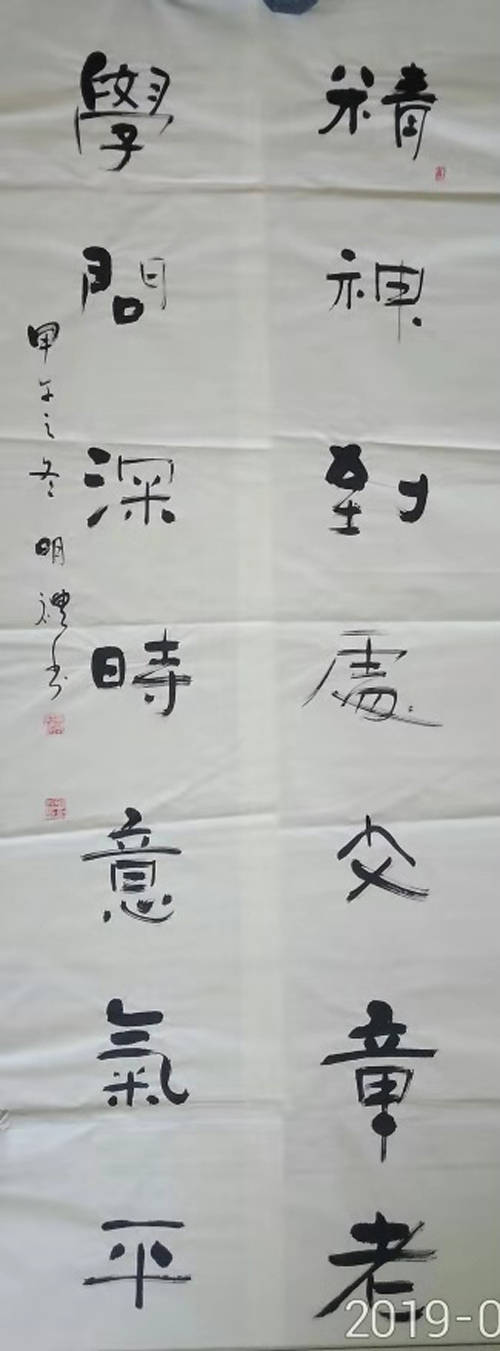 精神到處文章老
學問深時意氣平
甲午之冬 明禮书
2019-0